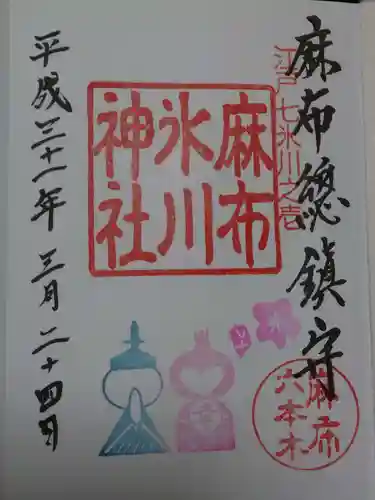 麻布總鎮守
江戸七氷川之壱
麻布
氷川
神社
平成三十一年 三月二十四日
麻布
六本木